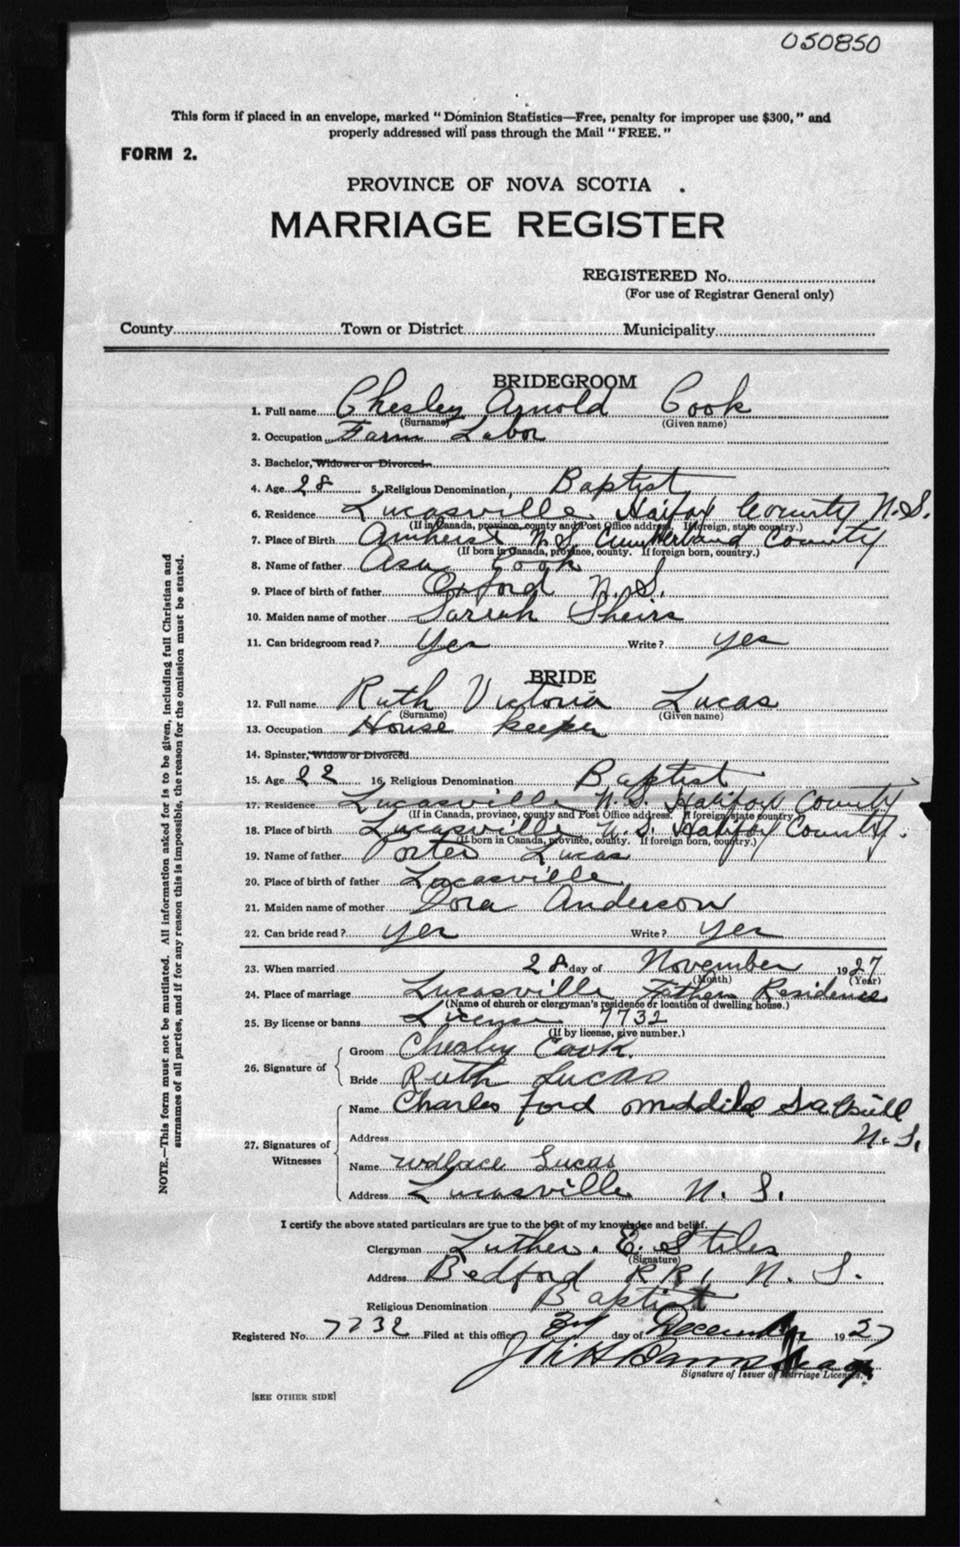 050850
This form if placed in an envelope, marked "Dominion Statistics—Free, penalty for improper use $300," and
properly addressed will pass through the Mail "FREE."
FORM 2.
PROVINCE OF NOVA SCOTIA
MARRIAGE REGISTER
REGISTERED No.
(For use of Registrar General only)
County Town or District Municipality
BRIDEGROOM
1. Full name Chesley Arnold Cook
(Surname) (Given name)
2. Occupation Farm Labor
3. Bachelor, Widower or Divorced
4. Age 28 5. Religious Denomination, Baptist
6. Residence Lucasville Halifax County N.S.
(If in Canada, province, county and Post Office address. If foreign, state country.)
7. Place of Birth Amherst N.S. Cumberland County
(If born in Canada, province, county. If foreign born, country.)
8. Name of father Asa Cook
9. Place of birth of father Oxford N.S.
10. Maiden name of mother Sarah
11. Can bridegroom read? Yes Write? yes
BRIDE
12. Full name Ruth Victoria Lucas
(Surname) (Given name)
13. Occupation House keeper
14. Spinster, Widow or Divorced
15. Age 22 16. Religious Denomination Baptist
17. Residence Lucasville N.S. Halifax County
(If in Canada, province, county and Post Office address. If foreign state country)
18. Place of birth Lucasville N.S. Halifax County.
(If born in Canada, province, county. If foreign born, country.)
19. Name of father Porter Lucas
20. Place of birth of father Lucasville
21. Maiden name of mother Dora Anderson
22. Can bride read? yes Write? yes
23. When married 28 day of November 1927
(Month) (Year)
24. Place of marriage Lucasville Fathers Residence
(Name of church or clergyman's residence or location of dwelling house.)
25. By license or banns License 7732
(If by license, give number.)
26. Signature of Groom Chesley Cook.
Bride Ruth Lucas
27. Signatures of Witnesses
Name Charles ford Middile
Address N.S.
Name Wallace Lucas
Address Lucasville N. S.
I certify the above stated particulars are true to the best of my knowledge and belief.
Clergyman Luther. E. Stiles
(Signature)
Address Bedford RR1 N. S.
Religious Denomination Baptist
Registered No. 7732 Filed at this office day of December 1927
Signature of Issuer of Marriage Licenses.
[SEE OTHER SIDE]
NOTE.—This form must not be mutilated. All information asked for is to be given, including full Christian and
surnames of all parties, and if for any reason this is impossible, the reason for the omission must be stated.